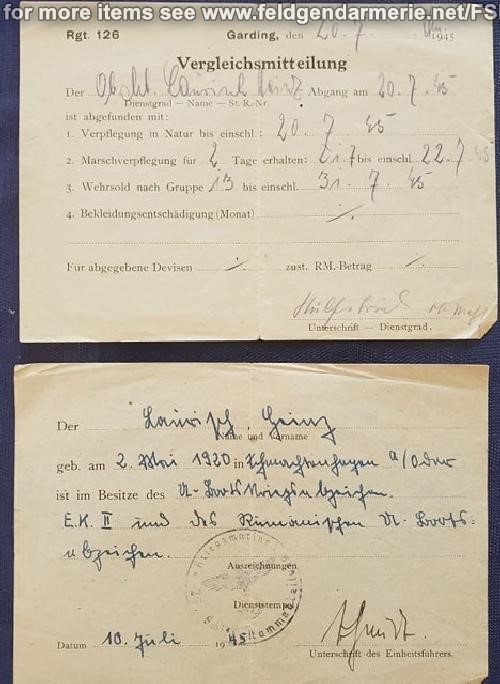 for more items see www.feldgendarmerie.net/FS
Rgt. 126 Garding, den 20. 7. 1945
Vergleichsmitteilung
Der Laurisch Heinz Abgang am 20. 7. 45
Dienstgrad — Name — St.R.-Nr.
ist abgefunden mit:
1. Verpflegung in Natur bis einschl.: 20. 7. 45
2. Marschverpflegung für 2 Tage erhalten: 21. 7 bis einschl. 22. 7. 45
3. Wehrsold nach Gruppe 13 bis einschl. 31. 7. 45
4. Bekleidungsentschädigung (Monat)
Für abgegebene Devisen zust. RM.-Betrag
Unterschrift — Dienstgrad.
Der Laurisch, Heinz
Name und Vorname
geb. am 2. Mai 1920 in Schmachtenhagen a/Oder
ist im Besitze des U-Bootskriegsabzeichen.
E.K. II und des Rumänischen U-Boots-
abzeichen.
Auszeichnungen
Dienststempel
Kriegsmarine
Datum 10. Juli 1945 Schmidt.
Unterschrift des Einheitsführers.